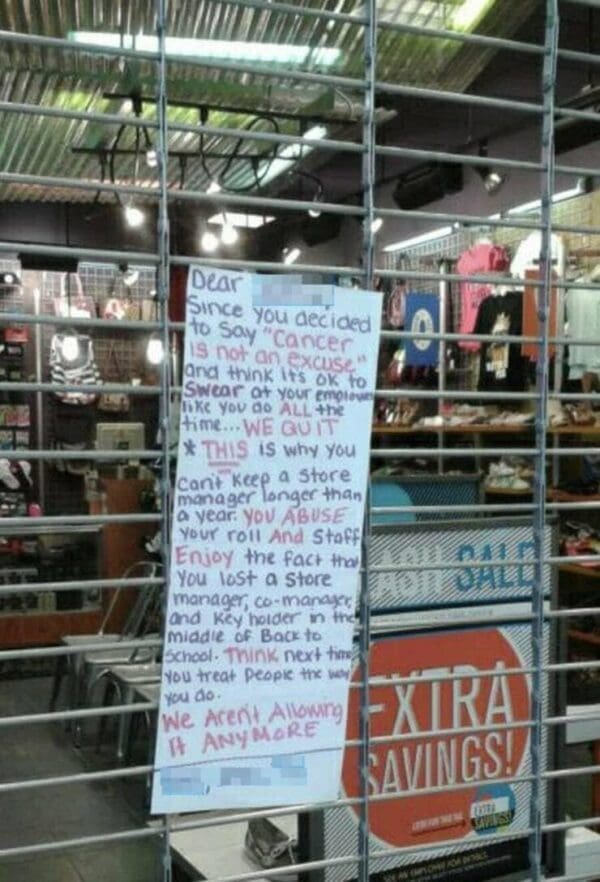 Dear
Since you decided
to say "Cancer
is not an excuse"
and think its ok to
Swear at your employees
like you do ALL the
time... WE QUIT
* THIS is why you
can't keep a store
manager longer than
a year. YOU ABUSE
your roll And Staff
Enjoy the fact that
You lost a store
manager, co-manager,
and key holder in the
middle of Back to
School. Think next time
you treat people the way
you do.
We Aren't Allowing
it ANYMORE
SALE
EXTRA
SAVINGS!
LOOK FOR THIS TAG
EXTRA
SAVINGS!
SEE AN EMPLOYEE FOR DETAILS